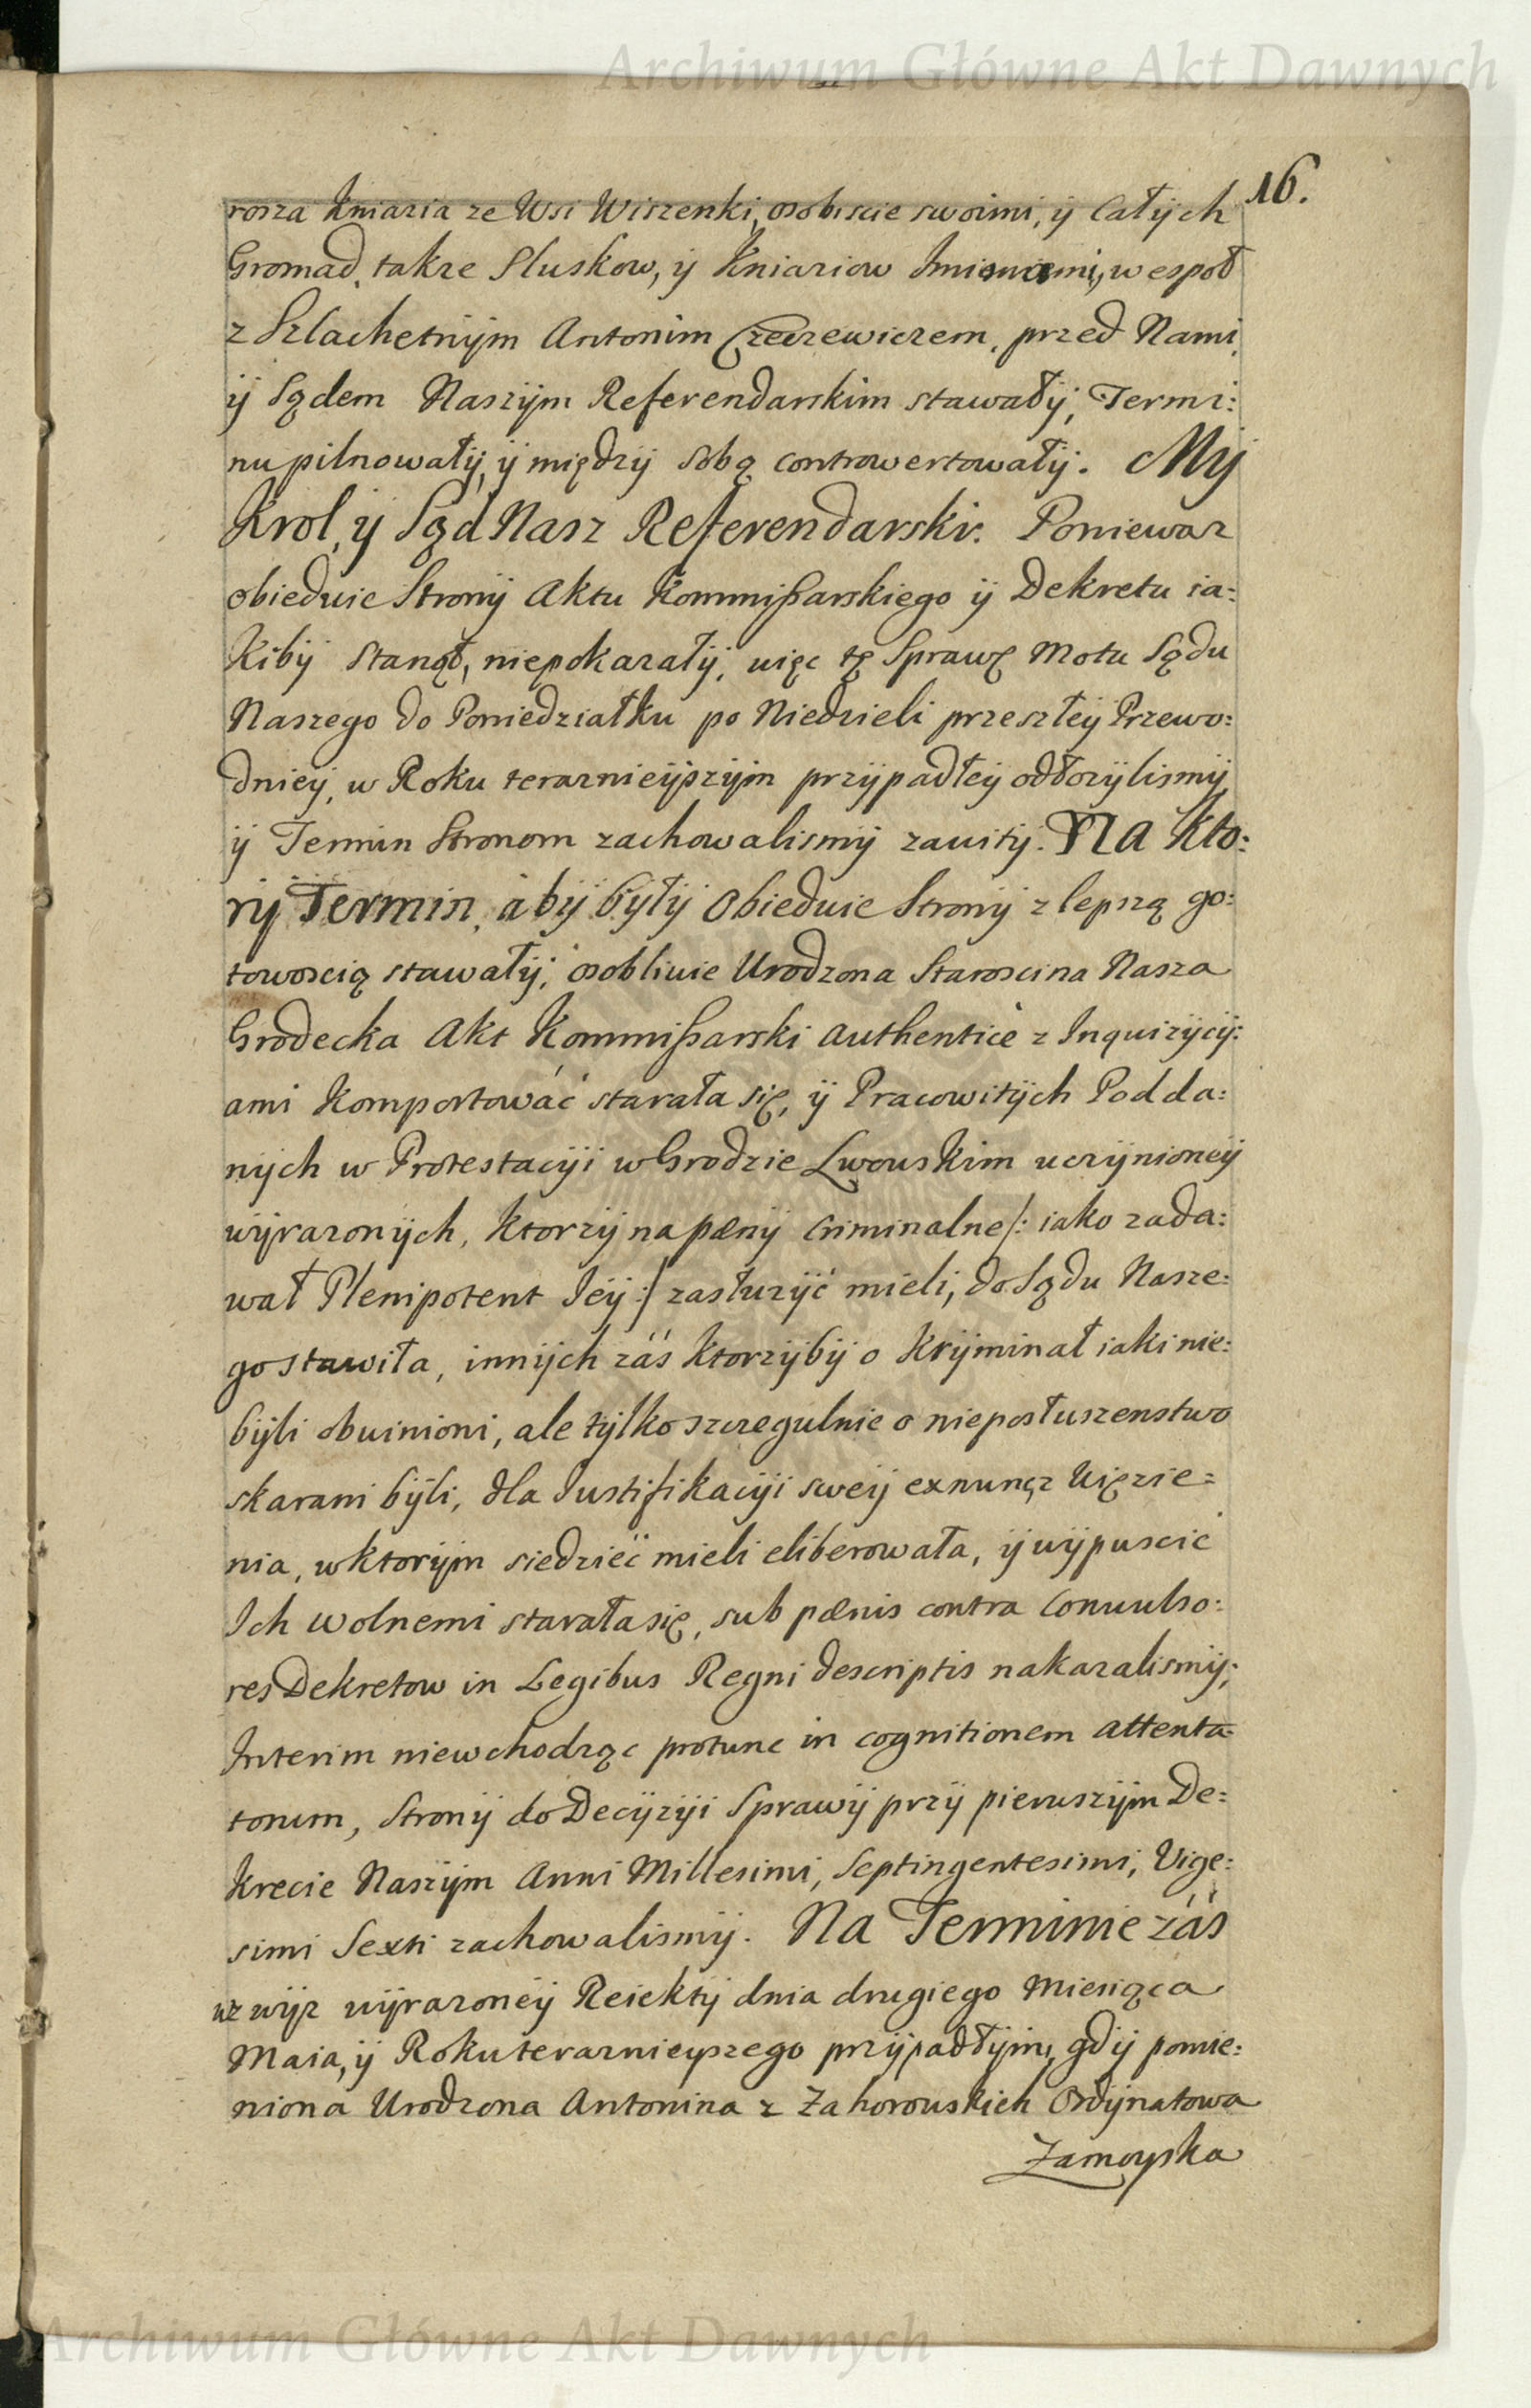 Archiwum Główne Akt Dawnych
16.
rosza Kniazia ze Wsi Wiszenki, osobiscie swoimi, ÿ Całÿch
Gromad, takze Sluskow, ÿ Kniaziow Imionami, wespoł
z Szlachetnÿm Antonim Czeczewiczem, przed Nami,
ÿ Sądem Naszÿm Referendarskim stawałÿ, Termi:
nu pilnowałÿ, ÿ międzÿ sobą controwertowałÿ. Mÿ
Krol, ÿ Sąd Nasz Referendarski: Poniewaz
obiedwie Stronÿ Aktu Kommißarskiego ÿ Dekretu ia:
kibÿ stanął, niepokazałÿ, więc tę Sprawę Motu Sądu
Naszego do Poniedziałku po Niedzieli przeszłeÿ Przewo:
dnieÿ, w Roku teraznieÿszÿm przÿpadłeÿ odłozÿlismÿ
ÿ Termin Stronom zachowalismÿ zawitÿ. Na kto:
rÿ Termin, abÿ bÿłÿ Obiedwie Stronÿ z lepszą go:
towoscią stawałÿ, osobliwie Urodzona Staroscina Nasza
Grodecka Akt Kommißarski authenticè z Inquizÿcÿ:
ami komportować starała się, ÿ Pracowitÿch Podda:
nÿch w Protestacÿi w Grodzie Lwowskim uczÿnioneÿ
wÿrazonÿch, ktorzÿ na pænÿ criminalne /: iako zada:
wał Plenipotent Ieÿ :/ zasłuzÿć mieli, do Sądu Nasze:
go stawiła, innÿch záś ktorzÿbÿ o krÿminał iaki nie:
bÿli obwinioni, ale tÿlko szczegulnie o nieposłuszenstwo
skarani bÿli, dla Iustifikacÿi sweÿ exnunc z Więzie=
nia, w ktorÿm siedzieć mieli eliberowała, ÿ wÿpuscić
Ich wolnemi starała się, sub pænis contra Convulso:
res Dekretow in Legibus Regni descriptis nakazalismÿ;
Interim niewchodząc protunc in cognitionem attenta=
torum, Stronÿ do Decÿzÿi Sprawÿ przÿ pierwszÿm De=
krecie Naszÿm Anni Millesimi, Septingentesimi, Vige:
simi Sexti zachowalismÿ. Na Terminie záś
wz wÿz wÿrazoneÿ Reiektÿ dnia drugiego Miesiąca
Maia, ÿ Roku teraznieyszego przÿpadłÿm, gdÿ pomie:
niona Urodzona Antonina z Zahorowskich Ordÿnatowa
Zamoyska
Archiwum Główne Akt Dawnych